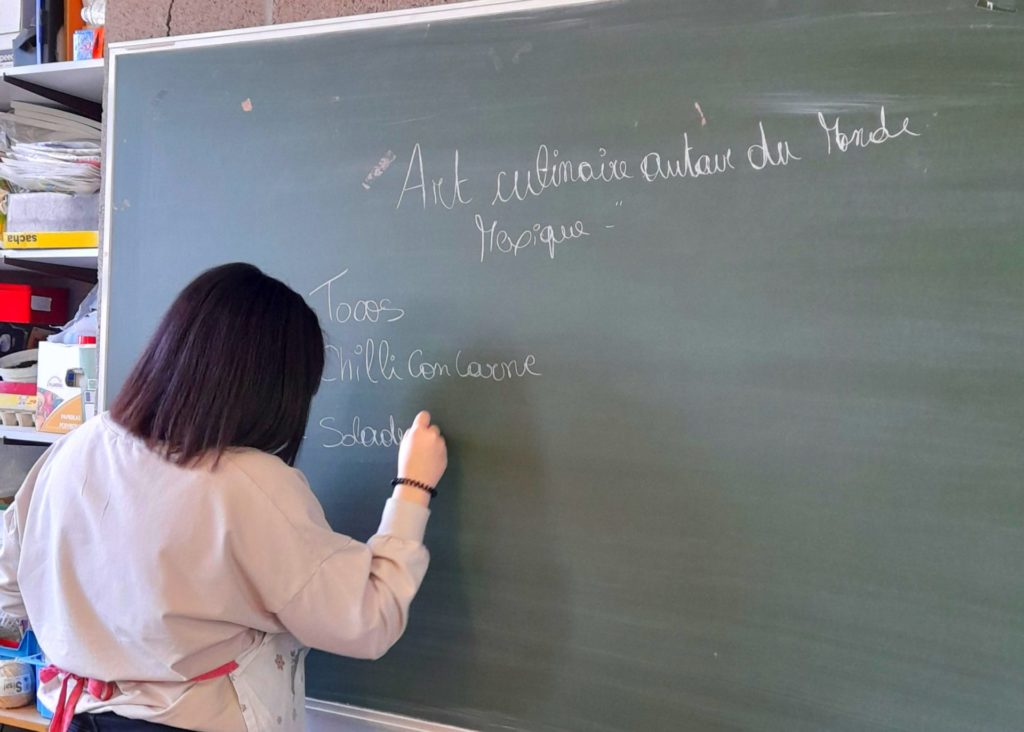 Art culinaire autour du Monde
Mexique - "
Tacos
Chilli Con Carne
- Salade
sacha
Sisal